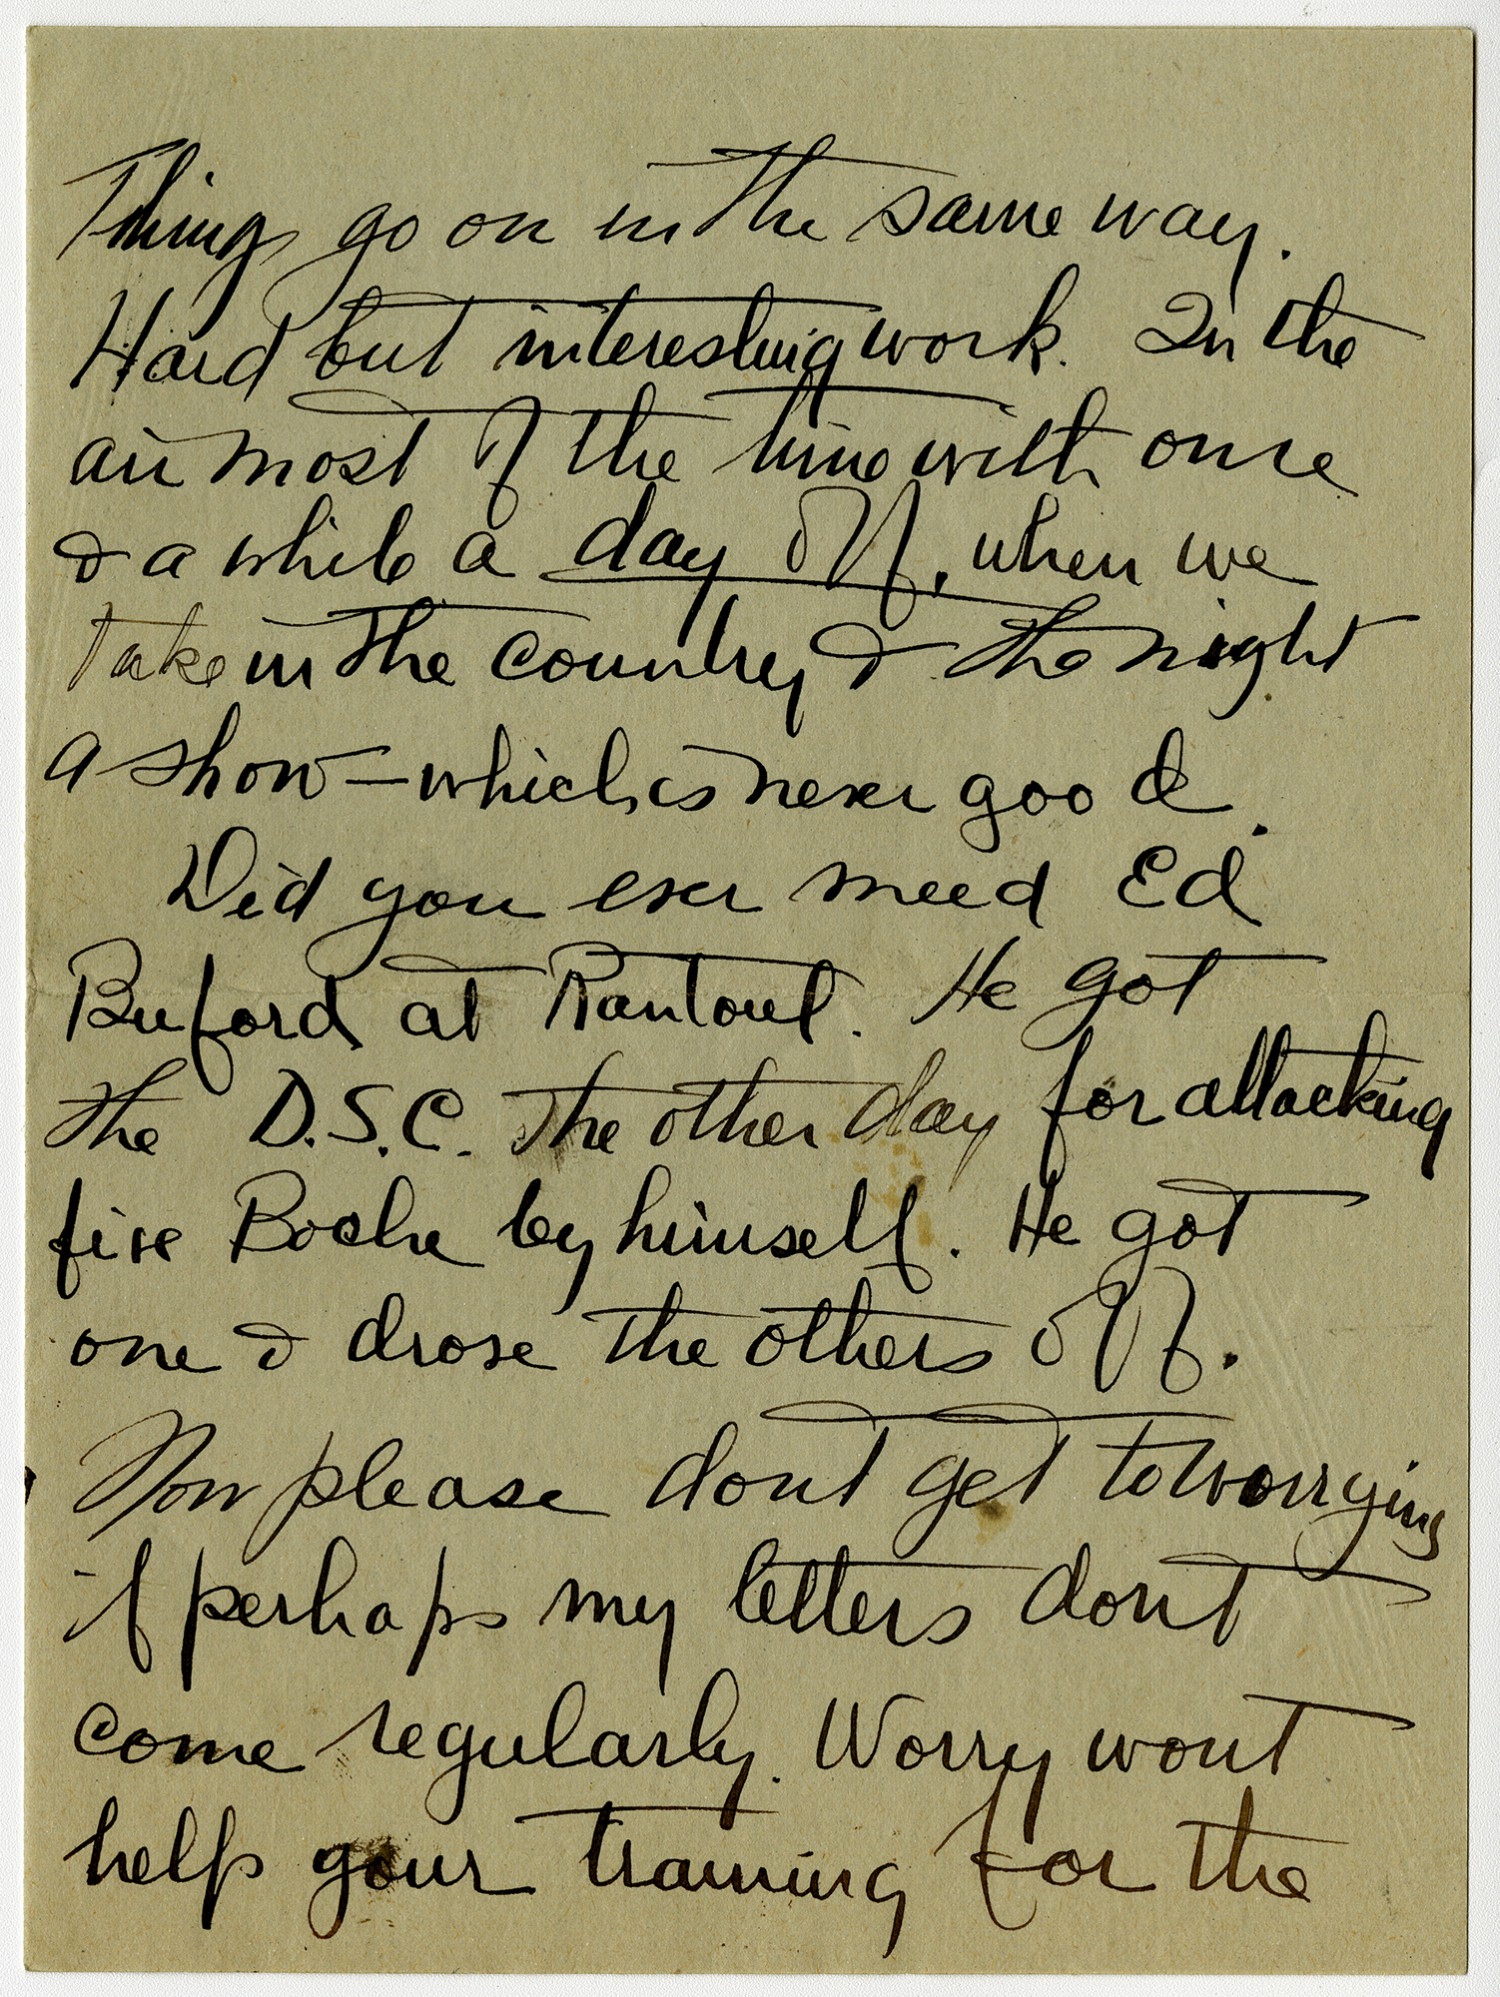 Things go on in the same way.
Hard but interesting work. In the
air most of the time with once
& a while a day off, when we
take in the country & the night
a show — which is never good.
Did you ever meed Ed
Buford at Rantoul. He got
the D.S.C. the other day for attacking
five Boche by himself. He got
one & drove the others off.
Now please dont get to worrying
if perhaps my letters dont
come regularly. Worry wont
help your training for the